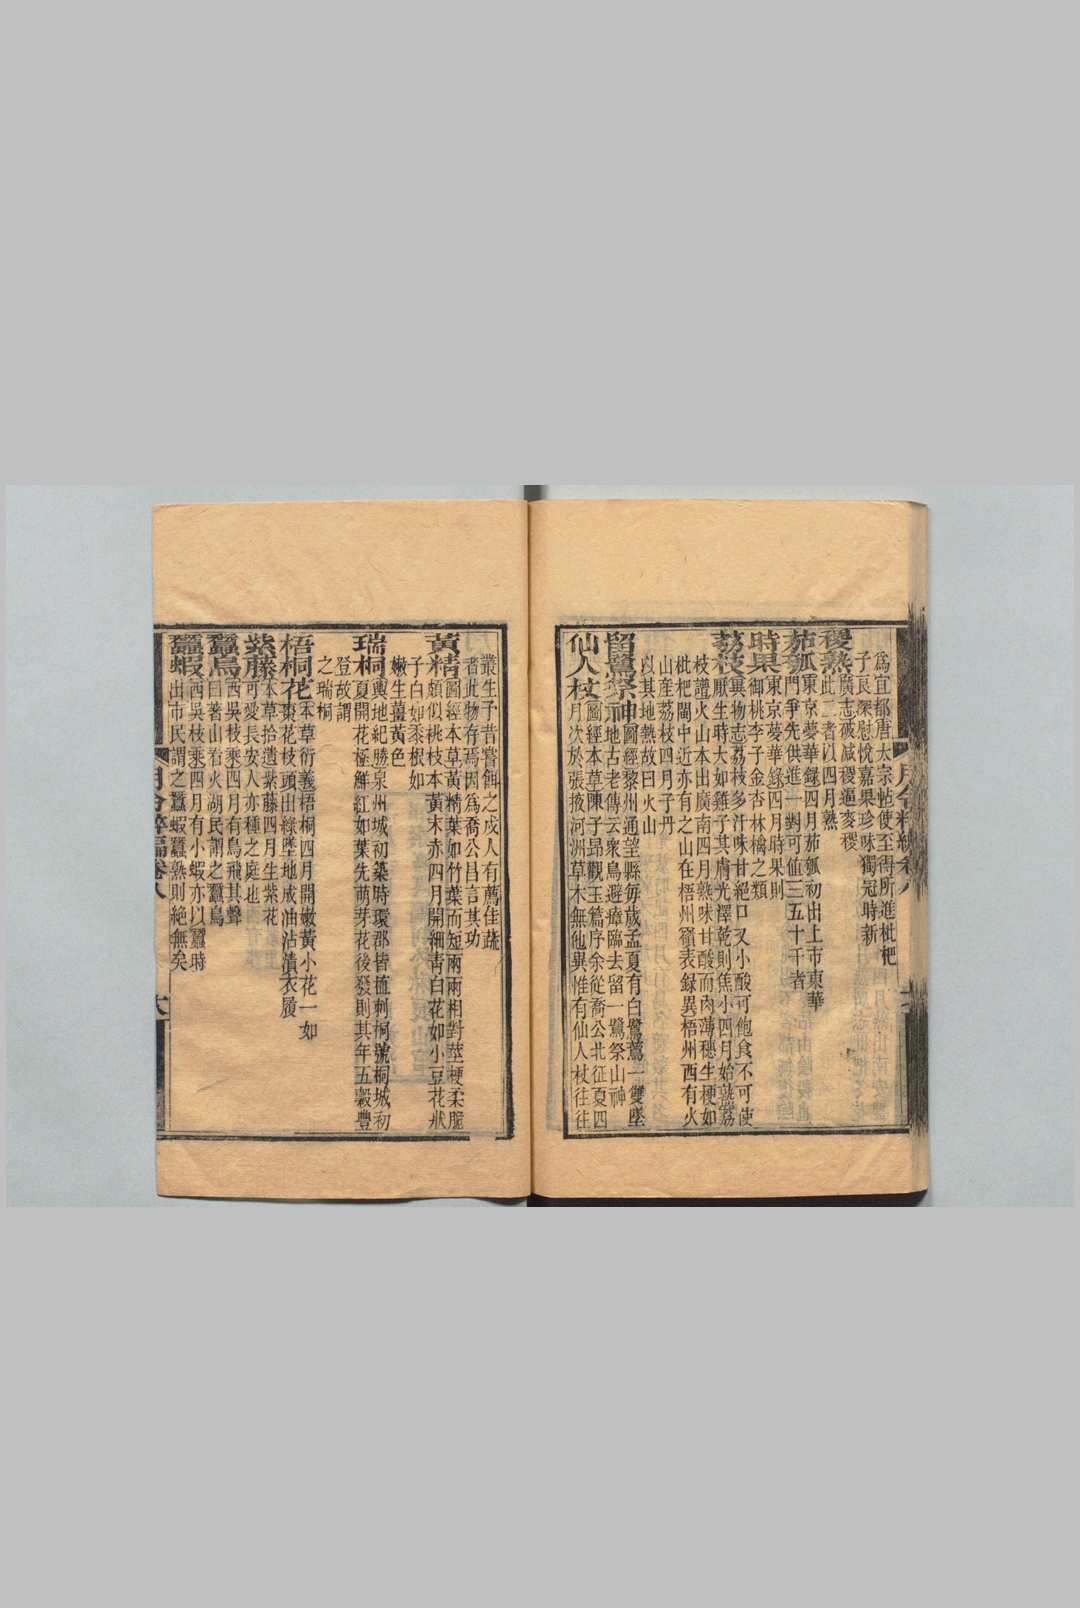 爲宜都唐太宗帖使至得所進枇杷
子良深慰悅嘉果珍味獨冠時新
稷熟廣志破减稷逼麥稷
此二者以四月熟
茄瓠東京夢華錄四月茄瓠初出上市東華
門爭先供進一對可值三五十千者
時果東京夢華錄四月時果則
御桃李子金杏林檎之類
荔枝異物志荔枝多汁味甘絕口又小酸可飽食不可使
厭生時大如雞子其膚光澤乾則焦小四月始熟荔
枝譜火山本出廣南四月熟味甘酸而肉薄穗生梗如
枇杷閩中近亦有之山在梧州嶺表錄異梧州西有火
山產荔枝四月子丹
以其地熱故曰火山
留鷺祭神圖經黎州通望縣每歲孟夏有白鷺鷥一雙墜
地古老傳云衆鳥避瘴臨去留一鷺祭山神
仙人杖圖經本草陳子昻觀玉篇序余從喬公北征夏四
月次於張掖河洲草木無他異惟有仙人杖往往
叢生予昔嘗餌之戍人有薦佳蔬
者此物存焉因爲喬公昌言其功
黃精圖經本草黃精葉如竹葉而短兩兩相對莖梗柔脆
頗似桃枝本黃末赤四月開細靑白花如小豆花狀
子白如黍根如
嫩生薑黃色
瑞桐輿地紀勝泉州城初築時環郡皆植刺桐號桐城初
夏開花極鮮紅如葉先萌芽花後發則其年五穀豐
登故謂
之瑞桐
梧桐花本草衍義梧桐四月開嫩黃小花一如
棗花枝頭出絲墜地成油沾漬衣履
紫藤本草拾遺紫藤四月生紫花
可愛長安人亦種之庭也
蠶鳥西吳枝乘四月有鳥飛其聲
曰著山看火湖民謂之蠶鳥
蠶蝦西吳枝乘四月有小蝦亦以蠶時
出市民謂之蠶蝦蠶熟則絕無矣
月令粹編卷八